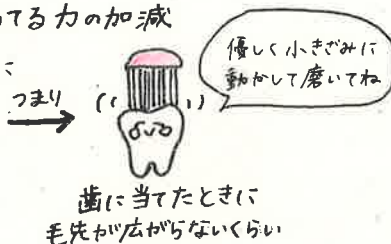 てる力の加減
に
つまり
優しく小きざみに
動かして磨いてね
歯に当てたときに
毛先が広がらないくらい